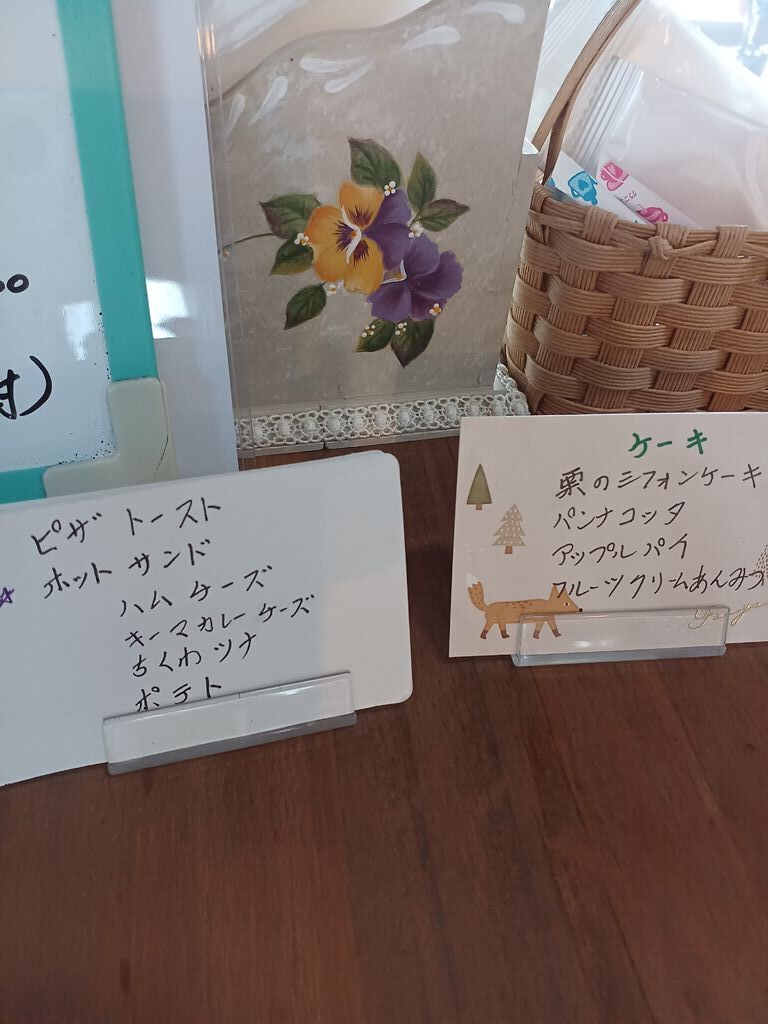 村)
ピザ トースト
☆ ホット サンド
ハム チーズ
キーマカレーチーズ
ちくわ ツナ
ポテト
ケーキ
栗のシフォンケーキ
パンナコッタ
アップルパイ
フルーツクリームあんみつ